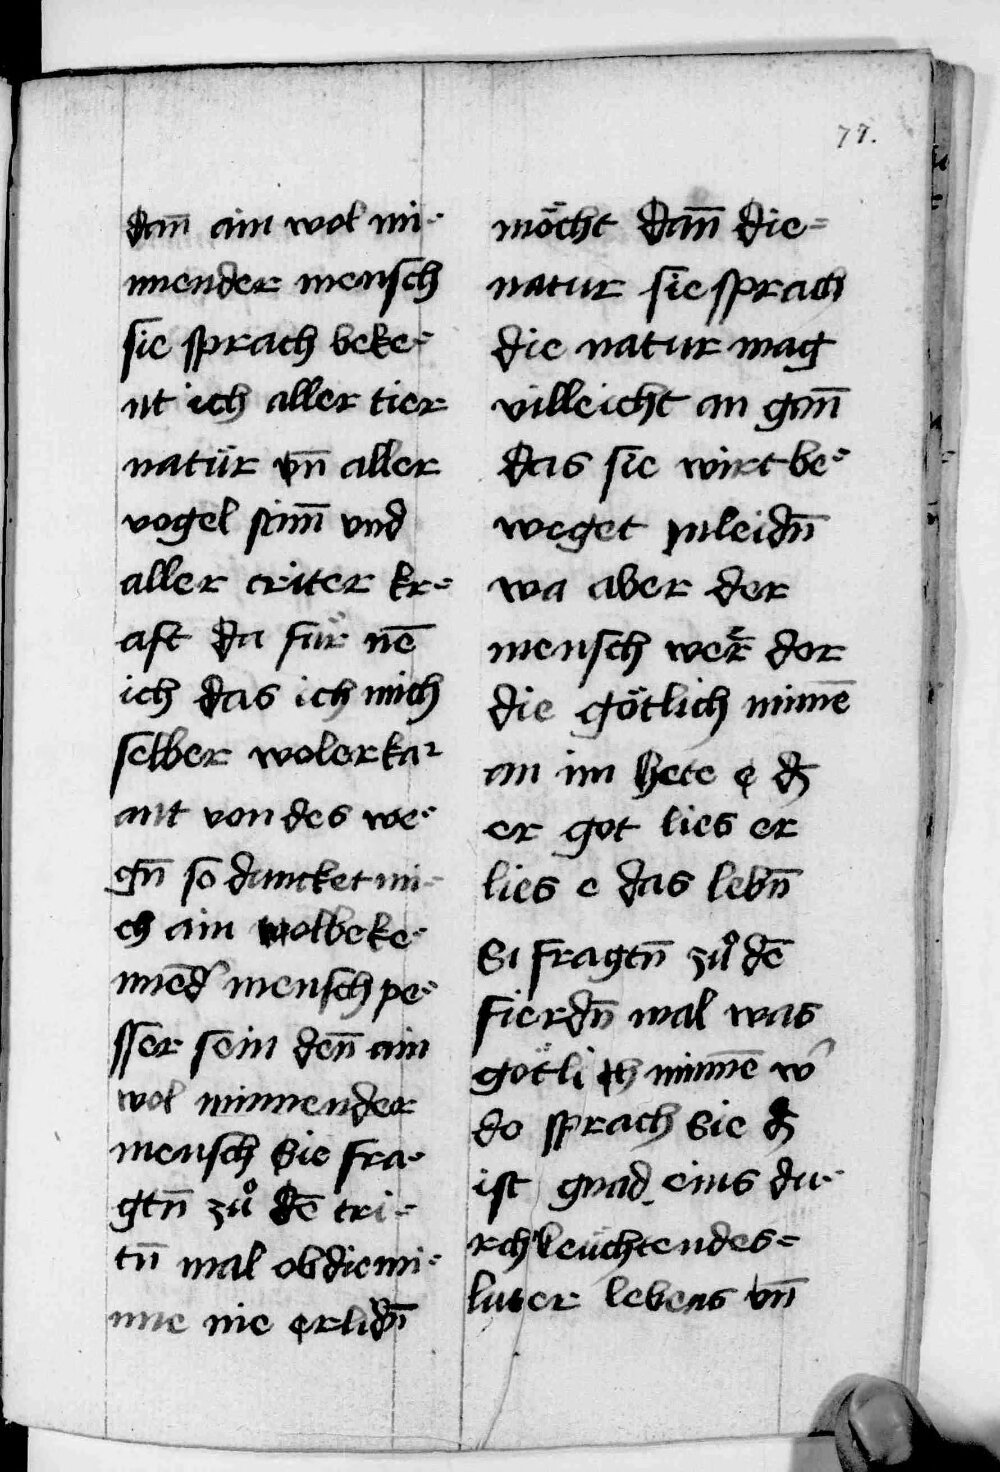 77.
dañ ain wol mi-
nnender mensch
sie sprach beke-
nt ich aller tier
natür vñ aller
vogel stim̄ vnd
aller criter kr-
aft da für nē
ich das ich mich
selber wol erka-
ant von des we-
gñ so duncket mi-
ch ain wolbeke-
nnēd mensch pe-
sser sein deñ ain
wol minnender
mensch Sie fra-
gtñ zů dē tri-
tñ mal ob die mi-
nne nie erlidñ
möcht dañ die-
natur sie sprach
die natur mag
villeicht an gan̄
das sie wirt be-
weget zuleidñ
wa aber der
mensch wer̄ dor
die götlich minnē
an im hete e dz
er got lies er
lies e das lebñ
Si fragtñ zů dē
fierdñ mal was
götlich minnē w
do sprach Sie dz
ist gnad eins du-
rchleüchtendes-
luter lebens vñ